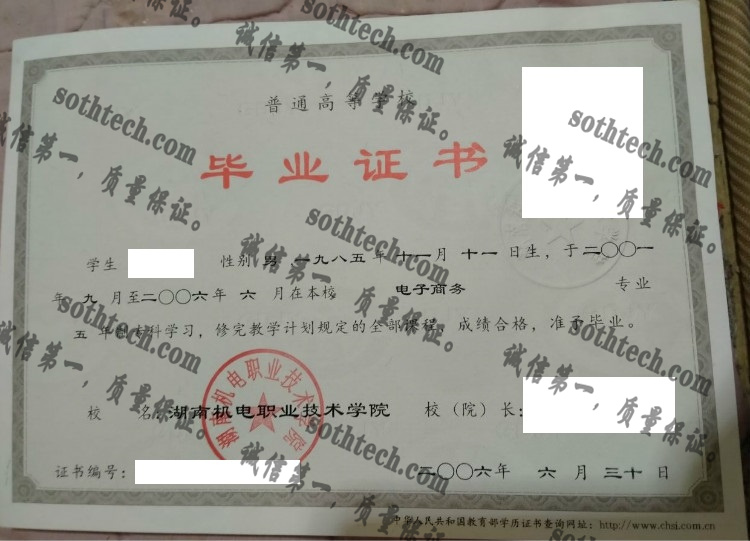 普通高等学校
毕业证书
学生 性别 男 一九八五年 十一月 十一日生，于二〇〇一
年 九 月至二〇〇六年 六 月在本校 电子商务 专业
五 年制专科学习，修完教学计划规定的全部课程，成绩合格，准予毕业。
校 名：湖南机电职业技术学院 校（院）长：
湖南机电职业技术学院
证书编号： 二〇〇六年 六 月 三十 日
中华人民共和国教育部学历证书查询网址：http://www.chsi.com.cn
sothtech.com
诚信第一，质量保证。
sothtech.com
诚信第一，质量保证。
sothtech.com
诚信第一，质量保证。
sothtech.com
诚信第一，质量保证。
sothtech.com
诚信第一，质量保证。
sothtech.com
诚信第一，质量保证。
sothtech.com
诚信第一，质量保证。
sothtech.com
诚信第一，质量保证。